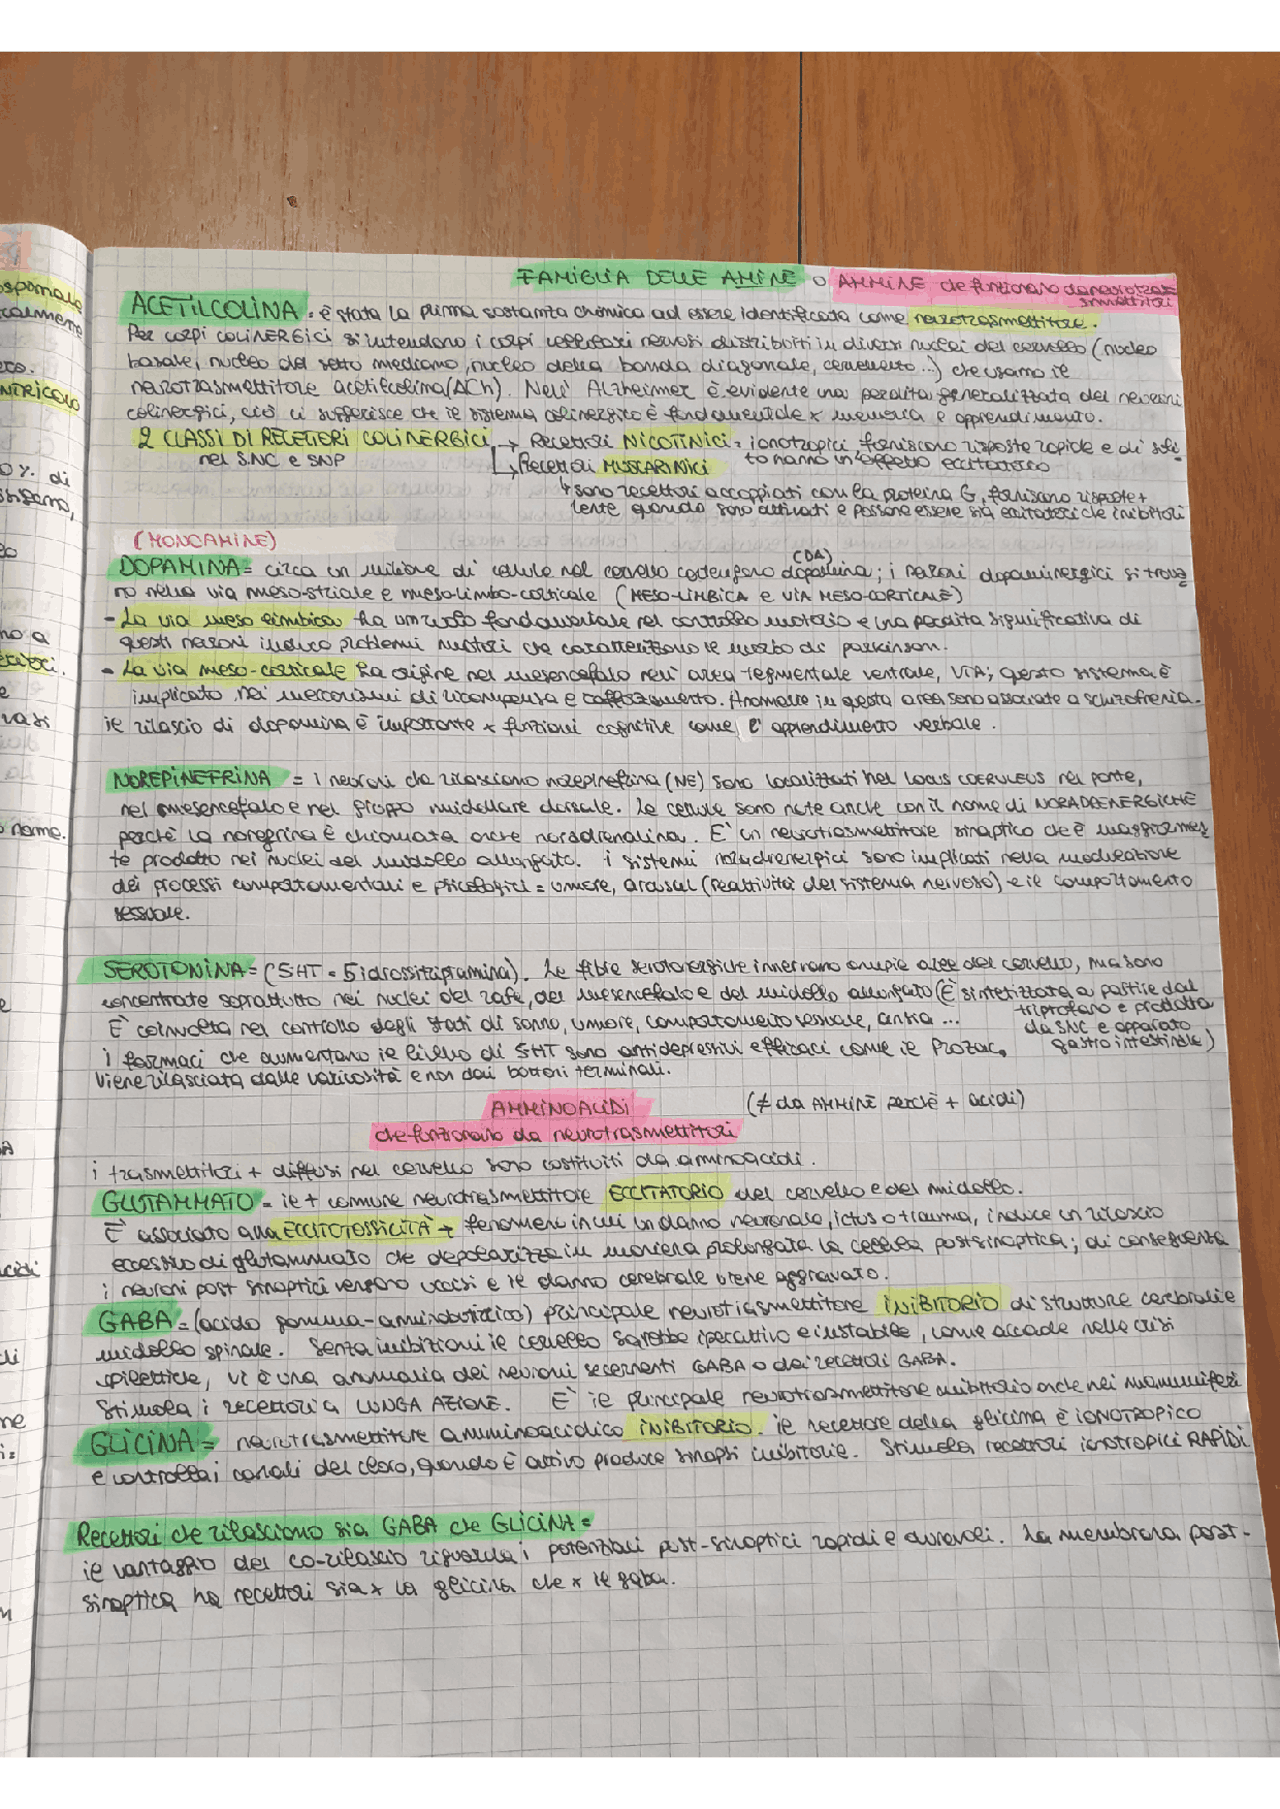 FAMIGLIA DELLE AMINE o AMMINE che funzionano da neurotra-
smettitori
ACETILCOLINA = è stata la prima sostanza chimica ad essere identificata come neurotrasmettitore.
Per corpi COLINERGICI si intendono i corpi cellulari nervosi distribuiti in diversi nuclei del cervello (nucleo
basale, nucleo del setto mediano, nucleo della banda diagonale, cervelletto...) che usano il
neurotrasmettitore acetilcolina (ACh). Nell' Alzheimer è evidente una perdita generalizzata dei neuroni
colinergici, ciò ci suggerisce che il sistema colinergico è fondamentale x memoria e apprendimento.
2 CLASSI DI RECETTORI COLINERGICI → Recettori NICOTINICI = ionotropici forniscono risposte rapide e di soli-
nel SNC e SNP ↳ Recettori MUSCARINICI to hanno un'effetto eccitatorio
↳ sono recettori accoppiati con la proteina G, forniscono risposte +
lente quando sono attivati e possono essere sia eccitatori che inibitori
(MONOAMINE)
(DA)
DOPAMINA = circa un milione di cellule nel cervello contengono dopamina; i neuroni dopaminergici si trova
no nella via meso-striale e meso-limbo-corticale (MESO-LIMBICA e VIA MESO-CORTICALE)
- La via meso limbica ha un ruolo fondamentale nel controllo motorio e una perdita significativa di
questi neuroni induce problemi motori che caratterizzano il morbo di parkinson.
- La via meso-corticale ha origine nel mesencefalo nell' area tegmentale ventrale, VTA; questo sistema è
implicato nei meccanismi di ricompensa e rafforzamento. Anomalie in questa area sono associate a schizofrenia.
il rilascio di dopamina è importante x funzioni cognitive come l' apprendimento verbale.
NOREPINEFRINA = i neuroni che rilasciano norepinefrina (NE) sono localizzati nel LOCUS COERULEUS nel ponte,
nel mesencefalo e nel gruppo midollare dorsale. Le cellule sono note anche con il nome di NORADRENERGICHE
perchè la è chiamata anche noradrenalina. E' un neurotrasmettitore sinaptico che è maggiormen
te prodotto nei nuclei del midollo allungato. i sistemi noradrenergici sono implicati nella modulazione
dei processi comportamentali e psicologici = umore, arousal (reattività del sistema nervoso) e il comportamento
sessuale.
SEROTONINA = (5HT = 5idrossitriptamina). Le fibre serotonergiche innervano ampie aree del cervello, ma sono
concentrate soprattutto nei nuclei del rafe, del mesencefalo e del midollo allungato (È sintetizzata a partire dal
E' coinvolta nel controllo degli stati di sonno, umore, comportamento sessuale, ansia ... triptofano e prodotta
da SNC e apparato
i farmaci che aumentano il livello di 5HT sono antidepressivi efficaci come il Prozac. gastrointestinale)
Viene rilasciata dalle varicosità e non dai bottoni terminali.
AMMINOACIDI (≠ da AMMINE perchè + acidi)
che funzionano da neurotrasmettitori
i trasmettitori + diffusi nel cervello sono costituiti da aminoacidi.
GLUTAMMATO = il + comune neurotrasmettitore ECCITATORIO del cervello e del midollo.
E' associato alla ECCITOTOSSICITÀ → fenomeni in cui un danno neuronale, ictus o trauma, induce un rilascio
eccessivo di glutammato che depolarizza in maniera prolungata la cellula postsinaptica; di conseguenza
i neuroni post sinaptici vengono uccisi e il danno cerebrale viene aggravato.
GABA = (acido gamma-aminobutirrico) principale neurotrasmettitore INIBITORIO di strutture cerebrali e
midollo spinale. Senza inibizioni il cervello sarebbe iperattivo e instabile, come accade nelle crisi
epilettiche, vi è una anomalia dei neuroni secernenti GABA o dei recettori GABA.
Stimola i recettori a LUNGA AZIONE. E' il principale neurotrasmettitore inibitorio anche nei mammiferi
GLICINA = neurotrasmettitore amminoacidico INIBITORIO. il recettore della glicina è IONOTROPICO
e controlla i canali del cloro, quando è attivo produce sinapsi inibitorie. Stimola recettori ionotropici RAPIDI
Recettori che rilasciono sia GABA che GLICINA =
il vantaggio del co-rilascio riguarda i potenziali post-sinaptici rapidi e durevoli. La membrana post-
sinaptica ha recettori sia x la glicina che x il gaba.